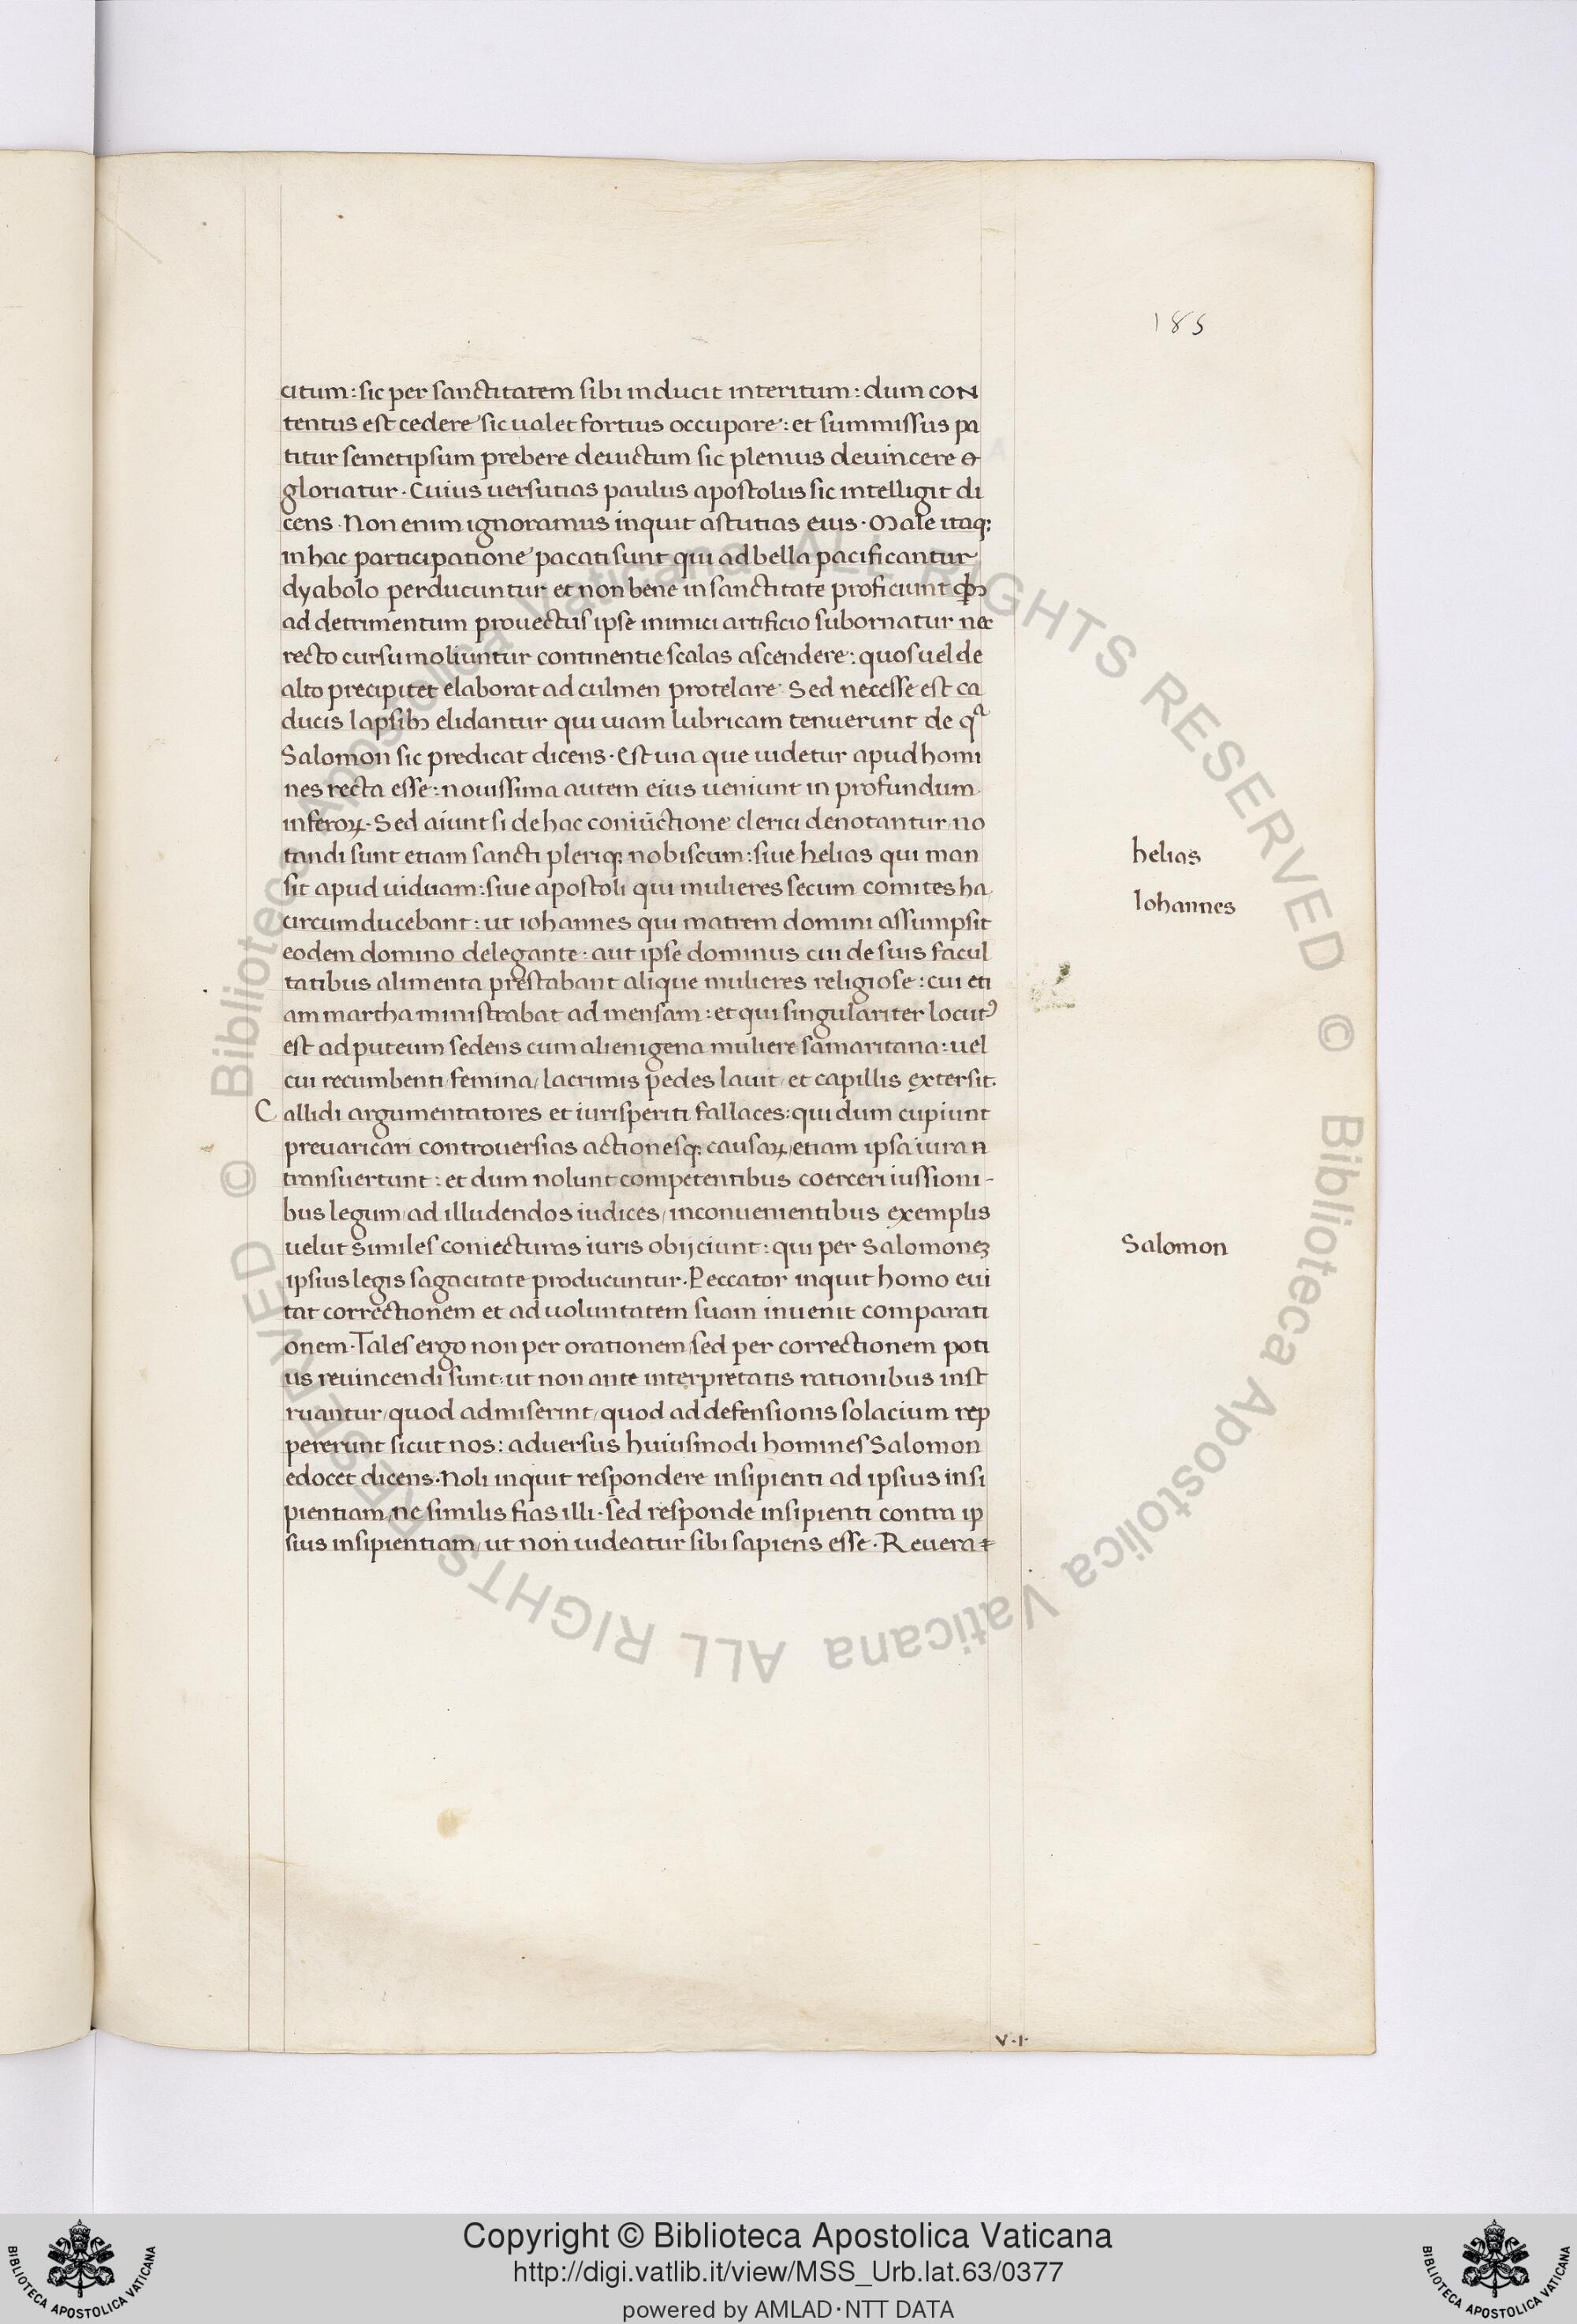 185
citum: sic per sanctitatem sibi inducit interitum: dum con
tentus est cedere sic ualet fortius occupare: et summissus pa
titur semetipsum prebere deuictum sic plenius deuincere &
gloriatur. Cuius uersutias paulus apostolus sic intelligit di
cens. Non enim ignoramus inquit astutias eius. Male itaq;
in hac participatione pacati sunt qui ad bella pacificantur
dyabolo perducuntur et non bene in sanctitate proficiunt
ad detrimentum prouectus ipse inimici artificio subornatur nec
recto cursu moliuntur continentie scalas ascendere: quos uel de
alto precipitet elaborat ad culmen protelare. Sed necesse est ca
ducis lapsibꝫ elidantur qui uiam lubricam tenuerunt de qᵃ
Salomon sic predicat dicens. Est uia que uidetur apud homi
nes recta esse: nouissima autem eius ueniunt in profundum
inferoꝝ. Sed aiunt si de hac coniūctione clerici denotantur/ no
tandi sunt etiam sancti pleriq; nobiscum: siue helias qui man
sit apud uiduam: siue apostoli qui mulieres secum comites ha
circumducebant: ut iohannes qui matrem domini assumpsit
eodem domino delegante: aut ipse dominus cui de suis facul
tatibus alimenta prestabant alique mulieres religiose: cui eti
am martha ministrabat ad mensam: et qui singulariter locutꝰ
est ad puteum sedens cum alienigena muliere samaritana: uel
cui recumbenti femina/ lacrimis pedes lauit/ et capillis extersit.
Callidi argumentatores et iurisperiti fallaces: qui dum cupiunt
preuaricari controuersias actionesq; causaꝝ/ etiam ipsa iura n
transuertunt: et dum nolunt competentibus coerceri iussioni-
bus legum/ ad illudendos iudices/ inconuenientibus exemplis
uelut similes coniecturas iuris obijciunt: qui per Salomoneꝫ
ipsius legis sagacitate producuntur. Peccator inquit homo eui
tat correctionem et ad uoluntatem suam inuenit comparati
onem. Tales ergo non per orationem/ sed per correctionem poti
us reuincendi sunt: ut non ante interpretatis rationibus inst
ruantur/ quod admiserint/ quod ad defensionis solacium rep
pererunt sicut nos: aduersus huiusmodi homines Salomon
edocet dicens. Noli inquit respondere insipienti ad ipsius insi
pientiam/ ne similis fias illi. sed responde insipienti contra ip
sius insipientiam/ ut non uideatur sibi sapiens esse. Reuera
helias
Iohannes
Salomon
V.I.
© Biblioteca Apostolica Vaticana ALL RIGHTS RESERVED © Biblioteca Apostolica Vaticana ALL RIGHTS RESERVED
BIBLIOTECA APOSTOLICA VATICANA
Copyright © Biblioteca Apostolica Vaticana
http://digi.vatlib.it/view/MSS_Urb.lat.63/0377
powered by AMLAD·NTT DATA
BIBLIOTECA APOSTOLICA VATICANA